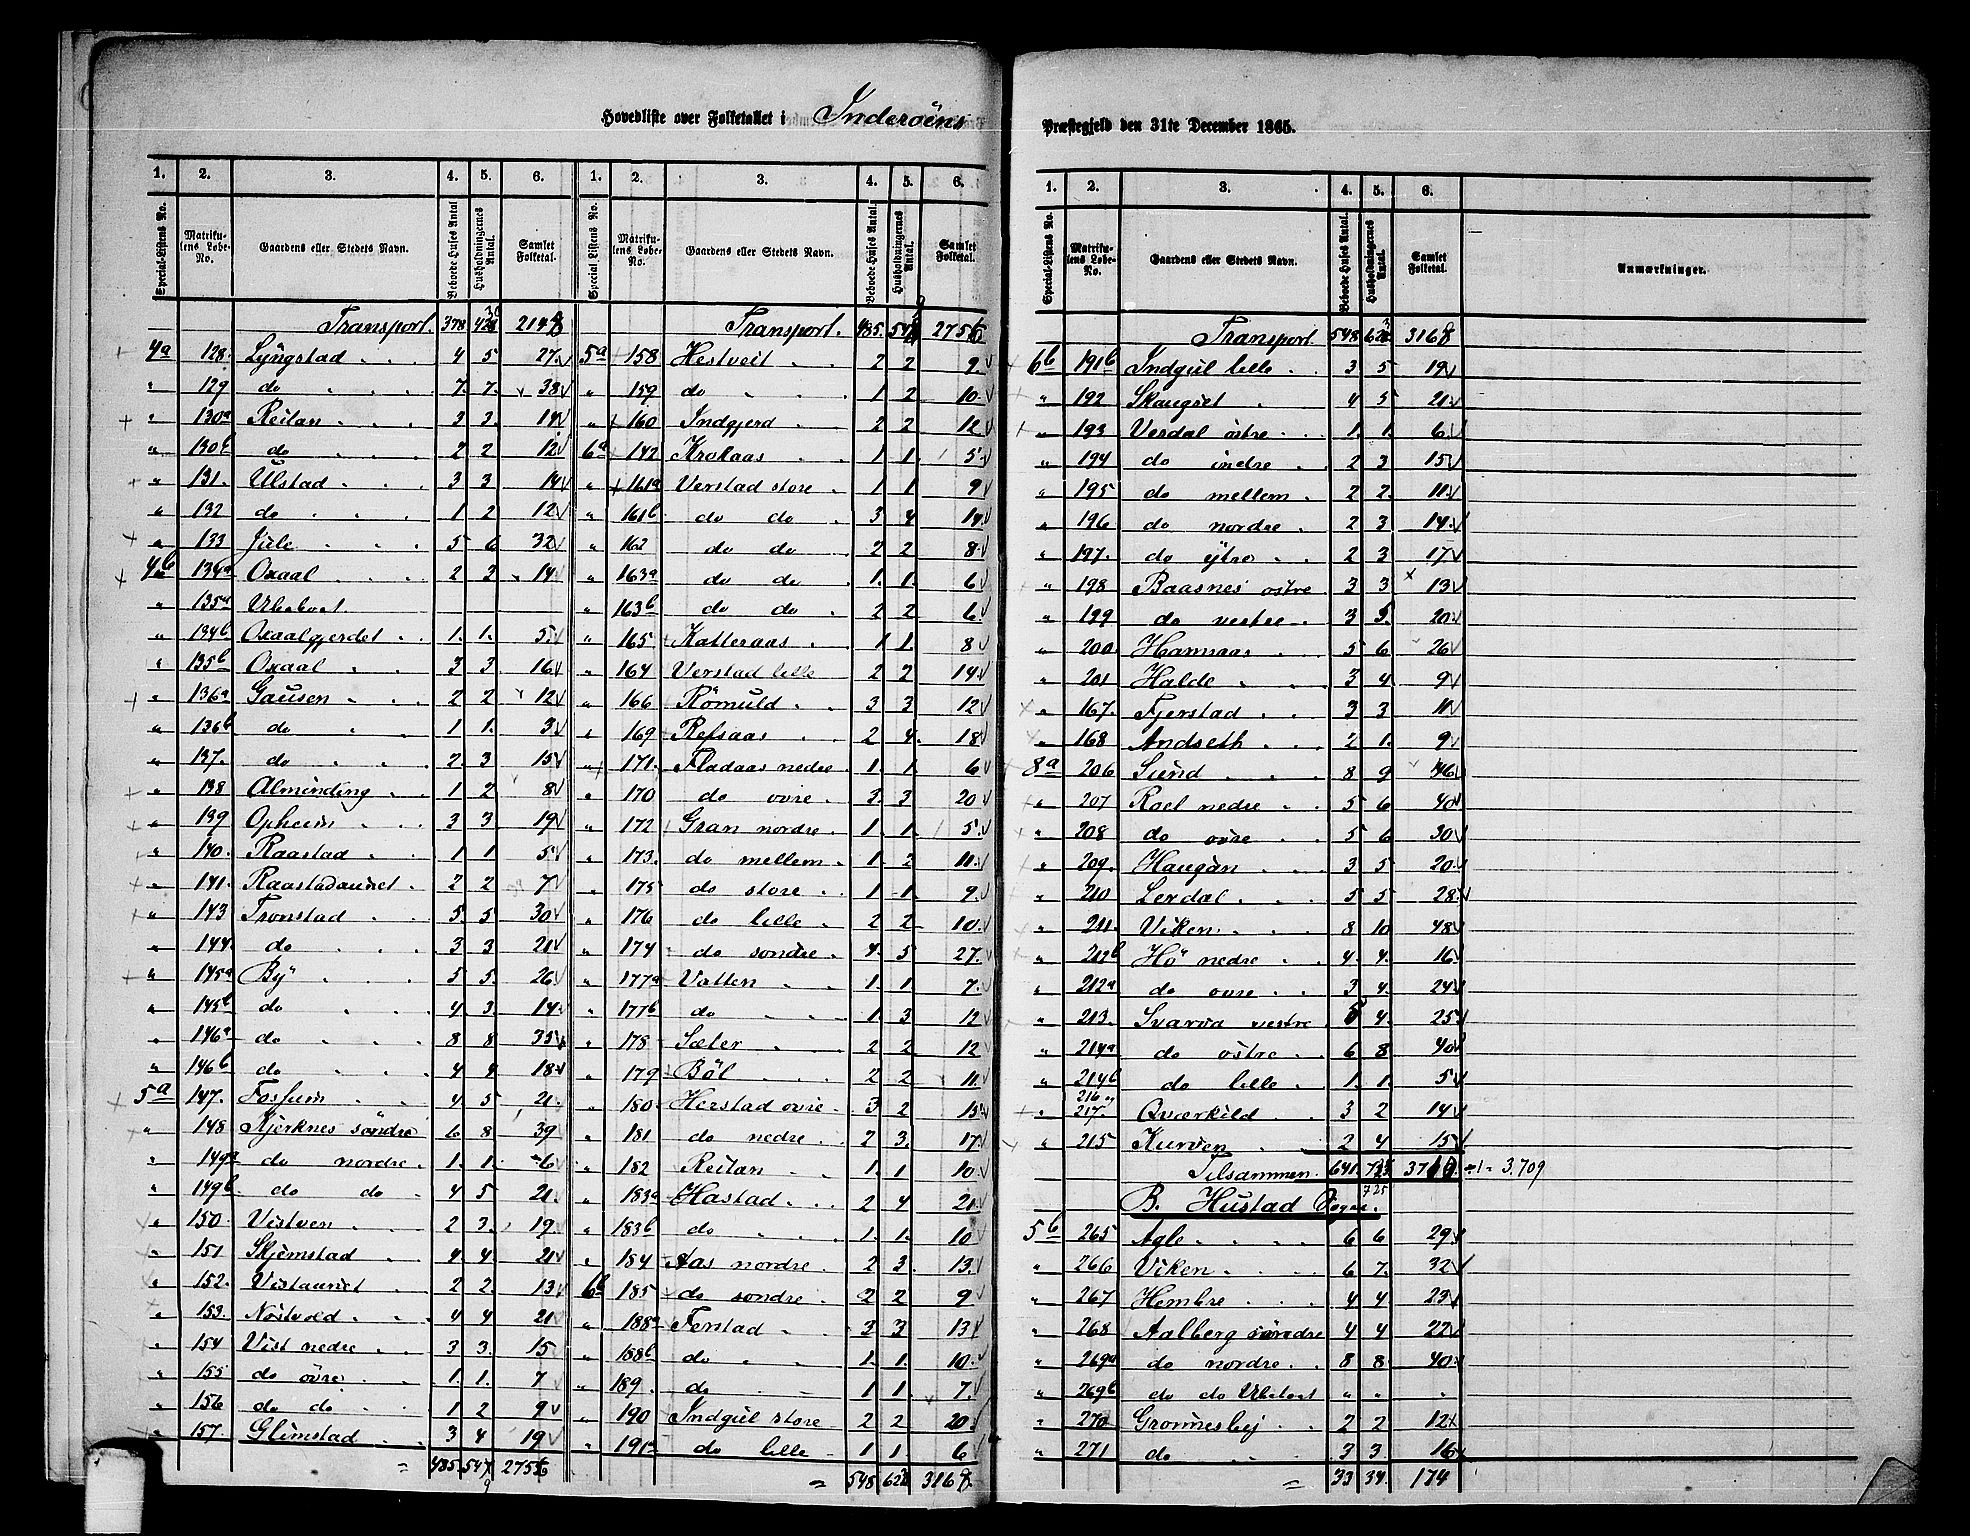 Hovedliste over Folketallet i Inderöens Præstegjeld den 31te December 1865.
1. 2. 3. 4. 5. 6.
Special-Listens No. Matrikulens Løbe-No. Gaardens eller Stedets Navn. Beboede Huses Antal Husholdningernes Antal. Samlet Folketal.
Transport. 378 2148
4a 128. Lyngstad 4 5 27
" 129 do 7. 7. 38
" 130a Reitan 3 3. 14
" 130b do 2 2 12
" 131. Ulstad 3 3 14
" 132 do 1 2 12
" 133 Jule 5 6 32
4b 134a Oxaal 2 3 14
" 135a Ubeboet
" 134b Oxaalgjerdet 1. 1. 5
" 135b Oxaal 3 3 16
" 136a Gausen 2 2 12
" 136b do 1 1. 3
" 137. do 2 3 15
" 138 Alminding 1 2 8
" 139 Opheim 3 3. 19
" 140. Raastad 1 1 5
" 141. Raastadaunet 2 2 7
" 143 Tronstad 5 5 30
" 144 do 3 3 21
" 145a By 5 5. 26
" 145b do 4 3. 14
" 146a do 8 8 35
" 146b do 4 4 18
5a 147. Fosheim 4 5 21
" 148 Kjerknes söndre 6 8 39
" 149a do nordre 1. 1. 6
" 149b do do 4 5 21
" 150 Vistven 2 3. 19
" 151 Skjemstad 4 4. 21
" 152. Vistaunet 2 2. 13
" 153. Nöstvold 4 4 21
" 154 Vist nedre 3 3. 15
" 155 do övre 1. 1. 7
" 156 do do 1 2 9
" 157. Glimstad 3 4 19
= 485. 547 2756
1. 2. 3. 4. 5. 6.
Special Listens No. Matrikulens Løbe-No. Gaardens eller Stedets Navn. Beboede Huses Antal. Husholdningernes Antal. Samlet Folketal.
Transport. 485. 2756
5a 158 Hestveit 2 2 9
" 159 do 1 2 10
" 160 Indgjerd 2 2 12
6a 142 Krokaas 1 1. 5
" 161a Verstad store 1 1 9
" 161b do do 3 4 14
" 162 do do 2 2 8
" 163a do do 1. 1. 6
" 163b do do 2 2 6
" 165 Katteraas 1 1. 8
" 164 Verstad lille 2 2 14
" 166 Römuld 3 3 12
" 169 Refsaas 2 4. 18
" 171. Fladaas nedre 1. 1. 6
" 170 do ovre 3. 3 20
" 172 Gran nordre 1. 1. 5
" 173. do mellem 1. 2 11
" 175 do store 1 1. 9
" 176 do lille 2 2 10
" 174 do söndre 4. 5 27
" 177a Vatten 1. 1. 7
" 177b do 1. 3 12
" 178 Sæter 2 2 12
" 179 Böl 2 2 11
" 180 Herstad ovre 3 2 13
" 181 do nedre 2 3. 17
" 182 Reitan 1. 1 10
" 183a Hastad 2 4 21
" 183b do 1. 1. 10
" 184 Aas nordre 2 3. 13
6b 185 do söndre 2 2 9
" 188a Ferstad 3 3 13
" 188b do 1. 1. 10
" 189 do 1 1. 7
" 190 Indgul store 2 2 20
" 191a do lille 1 1 6
= 548 3168
1. 2. 3. 4. 5. 6.
Special-Listens No. Matrikulens Løbe-No. Gaardens eller Stedets Navn. Beboede Huses Antal. Husholdningernes Antal. Samlet Folketal Anmærkninger.
Transport 548 3168
6b 191b Indgul lille 3 5 19
" 192 Skaugset 4 5 21
" 193 Verdal östre 1. 1. 6
" 194 do indre 2 3 15
" 195 do mellem 2 2. 11
" 196 do nordre 2 3 14
" 197. do ytre 2 3 17
" 198 Baasnes ostre 3 3 13
" 199 do vestre 3 5 20
" 200 Hamnaas 5 6 26
" 201 Halde 3 4. 9
" 167. Fjerstad 3 3 11
" 168 Andseth 2 1. 9
8a 206 Sund 8 9 46
" 207 Roel nedre 5 6 40
" 208 do ovre 5 6 30
" 209. Haugan 3 5 20
" 210 Lerdal 5 5 28
" 211. Viken 8 10 48
" 212b Hö nedre 4. 4. 16
" 212a do ovre 3 4. 24
" 213. Svarva vestre 5 4. 25
" 214a do östre 6 8 40
" 214b do lille 1. 1. 5
" 216 og 217. Qværkild 3 2 14
" 215 Kurven 2 4 15
Tilsammen 641. 725 3710 ÷1= 3,709
B. Hustad Sogn.
5b 265 Agle 6 6 29
" 266 Viken 6 7. 32
" 267 Hembre 4 4. 23
" 268 Aalberg söndre 4 4 22
" 269a do nordre 8 8 40
" 269b do do Ubeboet " " "
" 270 Gronneshej 2 2 12
" 271 do 3 3. 16
= 33 34. 174